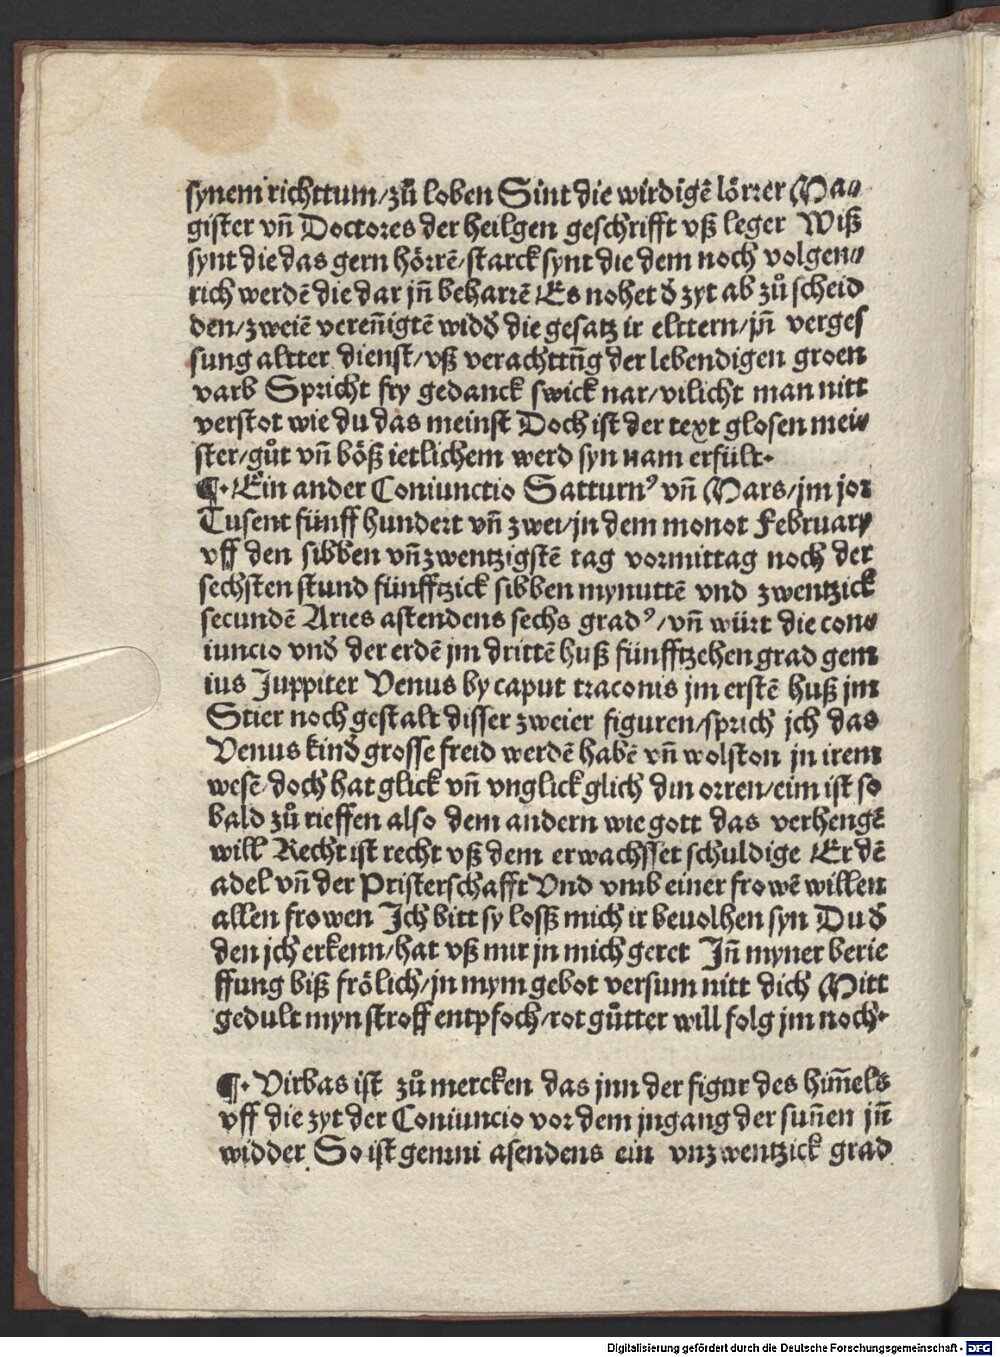 synem richttum/zů loben Sint die wirdigē lörrer Ma⸗
gister vn̄ Doctores der heilgen geschrifft vß leger Wiß
synt die das gern hörrē/starck synt die dem noch volgen⸗
rich werdē die dar jn̄ beharrē Es nohet d̄ zyt ab zů scheid
den/zweiē veren̄igtē widd̄ die gesatz ir elttern/jn̄ verges
sung altter dienst/vß verachttn̄g der lebendigen groen
varb Spricht fry gedanck swick nar/vilicht man nitt
verstot wie du das meinst Doch ist der text glosen mei⸗
ster/gůt vn̄ böß ietlichem werd syn nam erfült.
¶. Ein ander Coniunctio Satturnꝰ vn̄ Mars/jm jor
Tusent fünff hundert vn̄ zwei/jn dem monot Februarÿ
vff den sibben vn̄ zwentzigstē tag vormittag noch der
sechsten stund fünfftzick sibben mynuttē vnd zwentzick
secundē Aries astendens sechs gradꝰ/vn̄ würt die con⸗
iuncio vnd̄ der erdē jm drittē huß fünfftzehen grad gem
ius Juppiter Venus by caput traconis jm erstē huß jm
Stier noch gestalt disser zweier figuren/sprich jch das
Venus kind̄ grosse freid werdē habē vn̄ wolston jn irem
wesē/doch hat glick vn̄ vnglick glich din orren/eim ist so
bald zů rieffen also dem andern wie gott das verhengē
will Recht ist recht vß dem erwachsset schuldige Er dē
adel vn̄ der Pristerschafft Vnd vmb einer frowē willen
allen frowen Jch bitt sy losß mich ir beuolhen syn Du d̄
den jch erkenn/hat vß mir jn mich geret Jn̄ myner berie
ffung biß frölich/jn mym gebot versum nitt dich Mitt
gedult myn stroff entpfoch/rot gůtter will folg jm noch.
¶. Virbas ist zů mercken das jnn der figur des him̄els
vff die zyt der Coniuncio vor dem jngang der sun̄en jn̄
widder So ist gemini asendens ein vnzwentzick grad
Digitalisierung gefördert durch die Deutsche Forschungsgemeinschaft - DFG